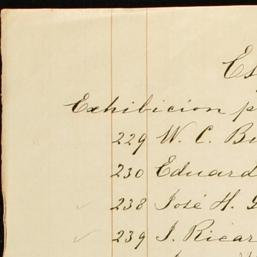 Exhibicion
229 W. C.
230 Eduard
238 José H.
239 J. Ricar